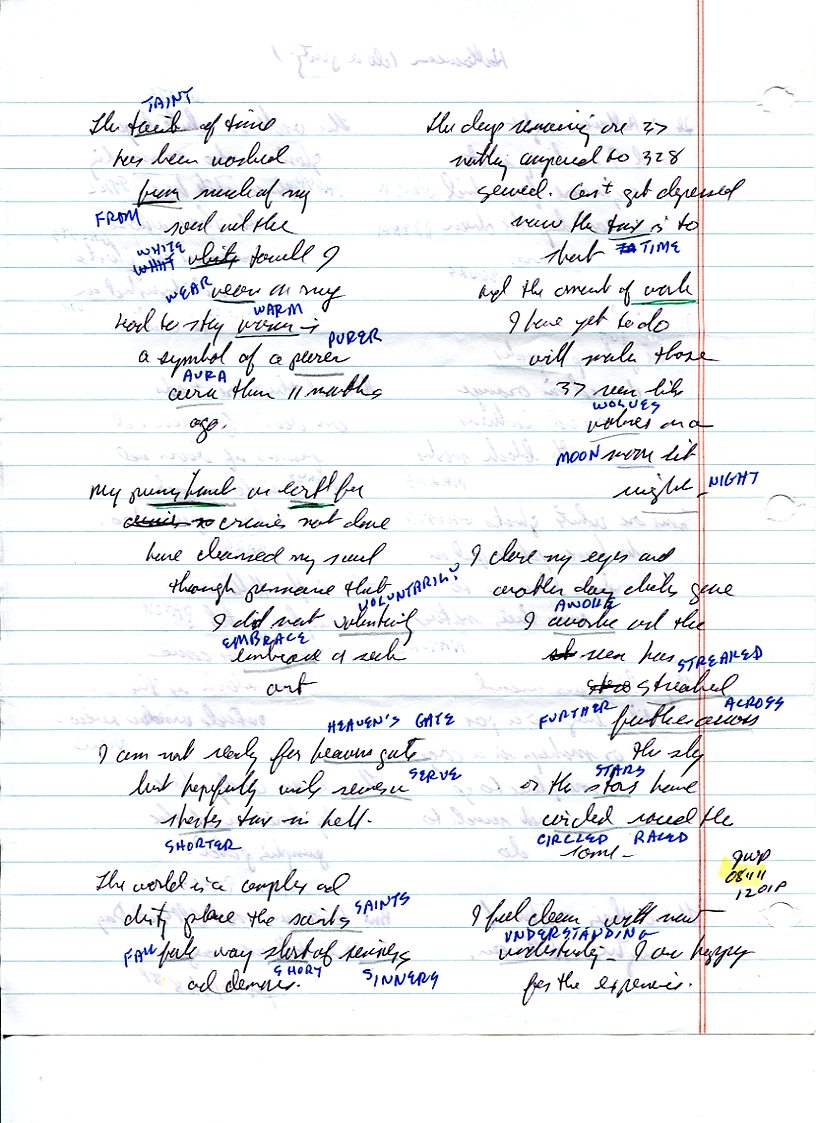 TAINT
The taint of time
has been washed
from much of my
FROM
soul and the
WHITE
white towell I
WEAR wear on my
WARM
head to stay warm is
PURER
a symbol of a purer
AURA
aura than 11 months
ago.
My punishment on earth for
crimes not done
have cleansed my soul
through penance that
VOLUNTARILY
I did not voluntarily
EMBRACE
embrace or seek
out
HEAVEN'S GATE
I am not ready for heavens gate
SERVE
but hopefully will serve a
shorter time in hell.
SHORTER
The world is a complex and
SAINTS
dirty place the saints
FALL fall way short of sinners
SHORT SINNERS
and demons.
The days remaining are 37
nothing compared to 328
served. Can't get depressed
now the time is to
short TIME
and the amount of work
I have yet to do
will make those
37 seem like
WOLVES
wolves on a
MOON moon lit
night NIGHT
I close my eyes and
another day clicks gone
AWOKE
I awoke and the
sun has STREAKED
streaked
FURTHER ACROSS
further across
the sky
STARS
or the stars have
circled round the
CIRCLED
some
I feel clean with new
UNDERSTANDING
understanding I am happy
for the experience.
JWP
08"11
1201P